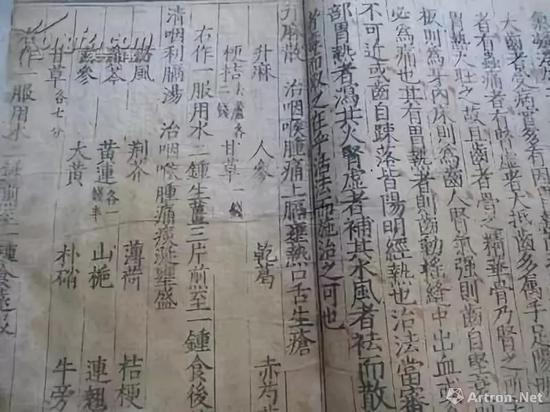 者有虫痛者有大抵齒多屬手足陽
胃熱大壯之故且齒者骨之精華骨乃腎之
板則為牙內床則為齒人腎氣強則齒自堅
必為痛也其有胃熱者則齒動搖縫中出血或
不可近或齒自踈落皆陽明經熱也治法當審
部胃熱者瀉其火腎虛者補其水風者祛而散
而取之在乎活法而施治之可也
升麻散 治咽喉腫痛上膈壅熱口舌生瘡
升麻 人參 乾葛 赤芍
桔梗去蘆各二錢 甘草一錢
右作一服用水二鍾生薑三片煎至一鍾食後
清咽利膈湯 治咽喉腫痛痰涎壅盛
防風 荊芥 薄荷 桔梗
黃芩 黃連各一錢半 山梔 連翹
玄參 大黃 朴硝 牛旁
甘草各七分
右作一服用水二鍾煎至一鍾食遠
Artron.Net